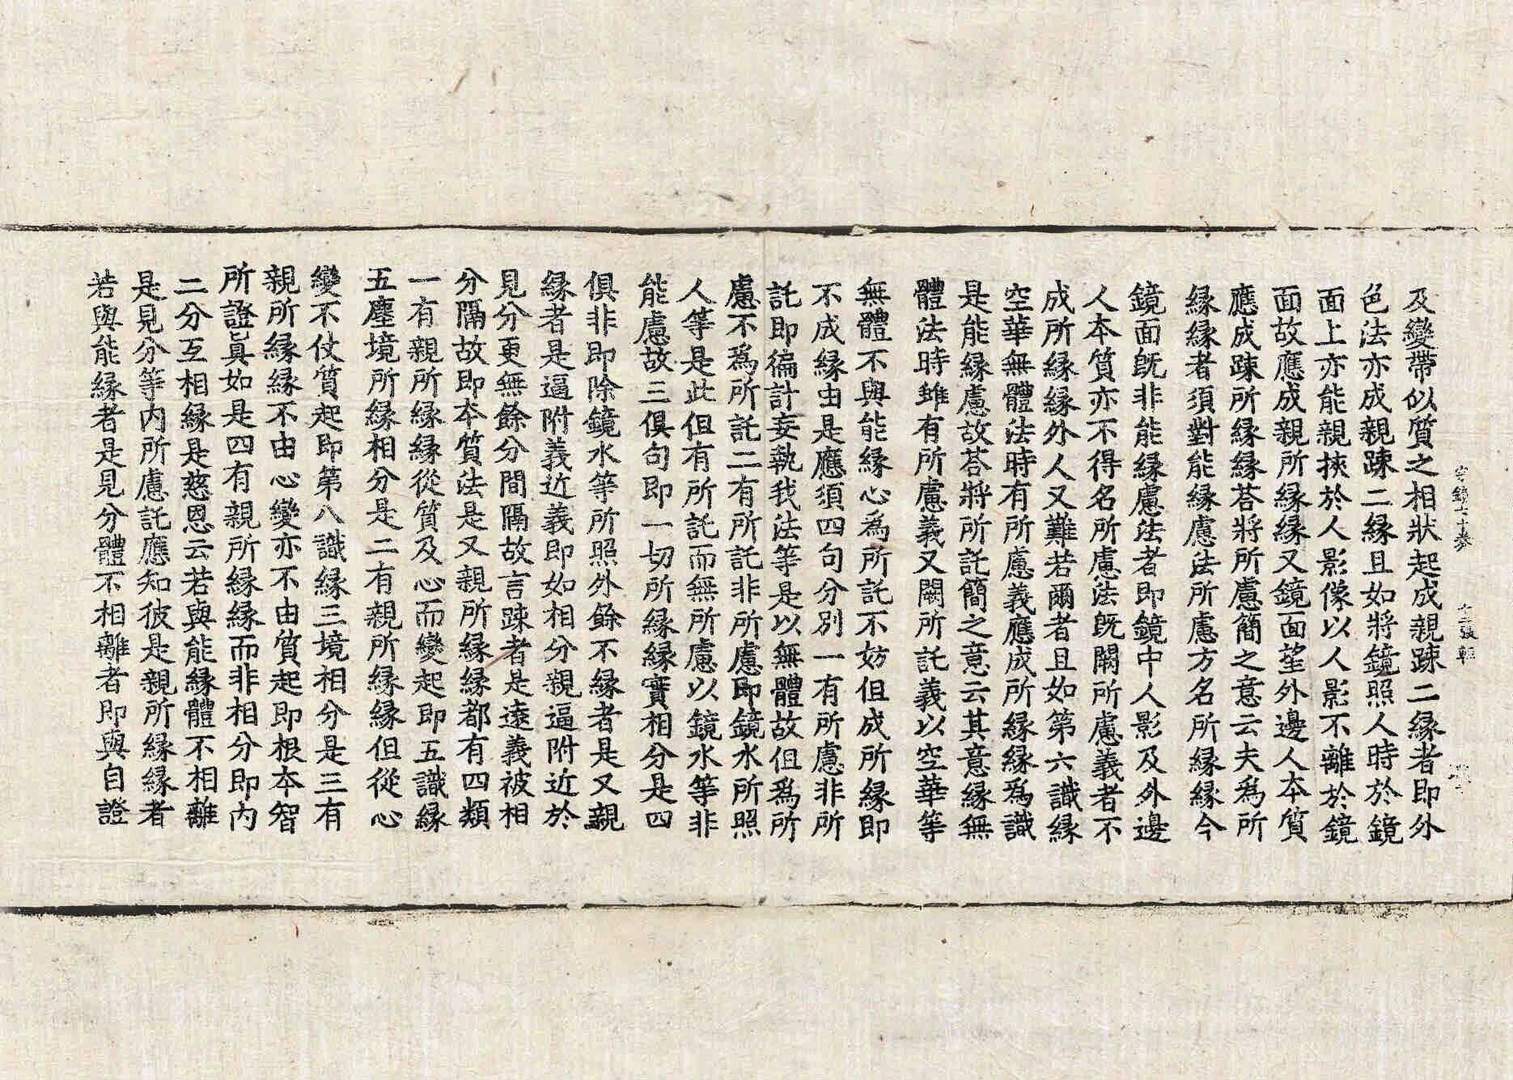 及變帶似質之相狀起成親踈二縁者即外
色法亦成親踈二縁且如將鏡照人時於鏡
面上亦能親挾於人影像以人影不離於鏡
面故應成親所縁縁又鏡面望外邊人本質
應成踈所縁縁荅將所慮簡之意云夫為所
縁縁者須對能縁慮法所慮方名所縁縁今
鏡面旣非能縁慮法者即鏡中人影及外邊
人本質亦不得名所慮法旣闕所慮義者不
成所縁縁外人又難若爾者且如第六識縁
空華無體法時有所慮義應成所縁縁為識
是能縁慮故荅將所託簡之意云其意縁無
體法時雖有所慮義又闕所託義以空華等
無體不與能縁心為所託不妨但成所縁即
不成縁由是應須四句分別一有所慮非所
託即徧計妄執我法等是以無體故但為所
慮不為所託二有所託非所慮即鏡水所照
人等是此但有所託而無所慮以鏡水等非
能慮故三俱句即一切所縁縁實相分是四
俱非即除鏡水等所照外餘不縁者是又親
縁者是逼附義近義即如相分親逼附近於
見分更無餘分間隔故言踈者是遠義被相
分隔故即本質法是又親所縁縁都有四類
一有親所縁縁從質及心而變起即五識縁
五塵境所縁相分是二有親所縁縁但從心
變不仗質起即第八識縁三境相分是三有
親所縁縁不由心變亦不由質起即根本智
所證真如是四有親所縁縁而非相分即內
二分互相縁是慈恩云若與能縁體不相離
是見分等內所慮託應知彼是親所縁縁者
若與能縁者是見分體不相離者即與自證